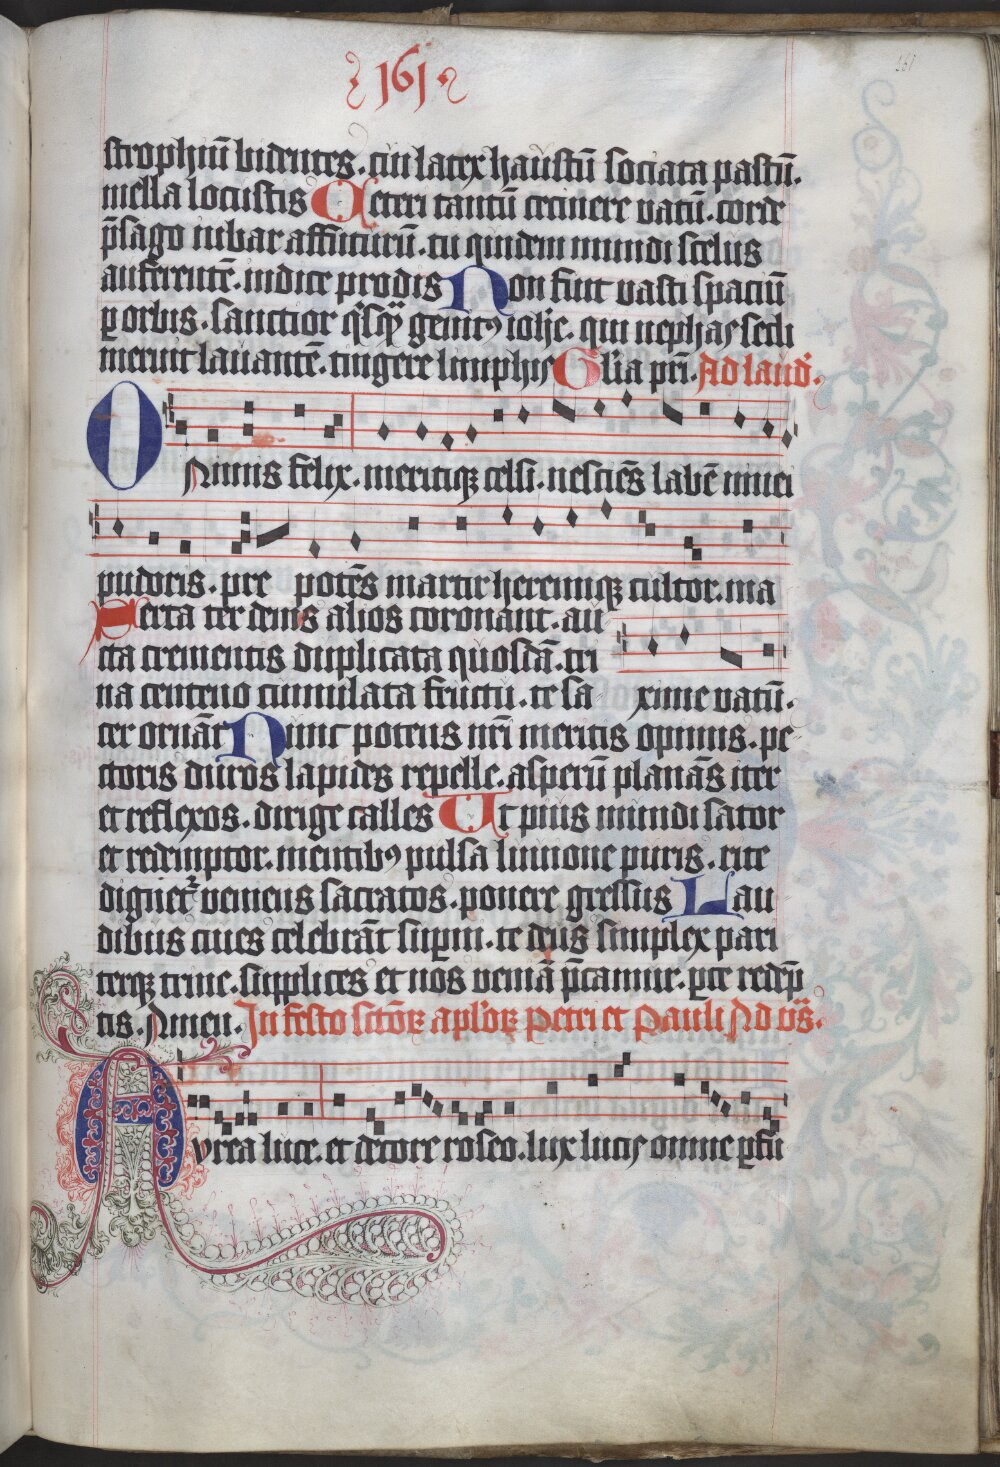 161
161
strophiū bidentes. cui latex haustū sociata pastū.
mella locustis Ceteri tantū cecinere vatū. corde
p̄sago iubar affuturū. tu quidem mundi scelus
auferentē. indice prodis Non fuit vasti spaciū
ꝑ orbis. sanctior q̄sqꝫ genitꝰ ioħe. qui nephas secli
meruit lavantē. tingere limphis Gl̄ia pr̄i. Ad laud̄.
O Nimis felix. meritiqꝫ celsi. nesciēs labē nivei
pudoris. pre potēs martir heremiqꝫ cultor. ma
Serta ter denis alios coronant. au
cta crementis duplicata quosdā. tri
na centeno cumulata fructu. te sa xime vatū.
cer ornāt Nunc potens nr̄i meritis opimis. pe
ctoris duros lapides repelle. asperū planās iter
et reflexos. dirige calles Ut pius mundi sator
et redemptor. mentibꝰ pulsa livione puris. rite
dignet᷑ veniens sacratos. ponere gressus Lau
dibus cives celebrāt suꝑni. te deus simplex pari
terqꝫ trine. supplices et nos veniā p̄camur. ꝑce redēp
tis. Amen. In festo sctōꝝ apl̓oꝝ Petri et Pauli Ad vs̄.
Aurea luce. et decore roseo. lux lucis omne ꝑfu